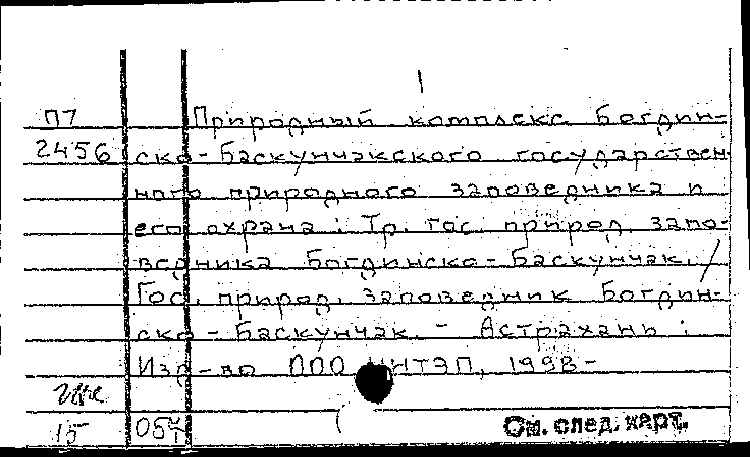 П7 Природный комплекс Богдин-
2456 ско-Баскунчакского государствен
ного природного заповедника и
его охрана : Тр. гос. природ. запо-
ведника Богдинско-Баскунчак. /
Гос. природ. заповедник Богдин-
ско-Баскунчак. - Астрахань :
Изд-во ООО ЦНТЭП, 1998-
15 Об
См. след. карт.